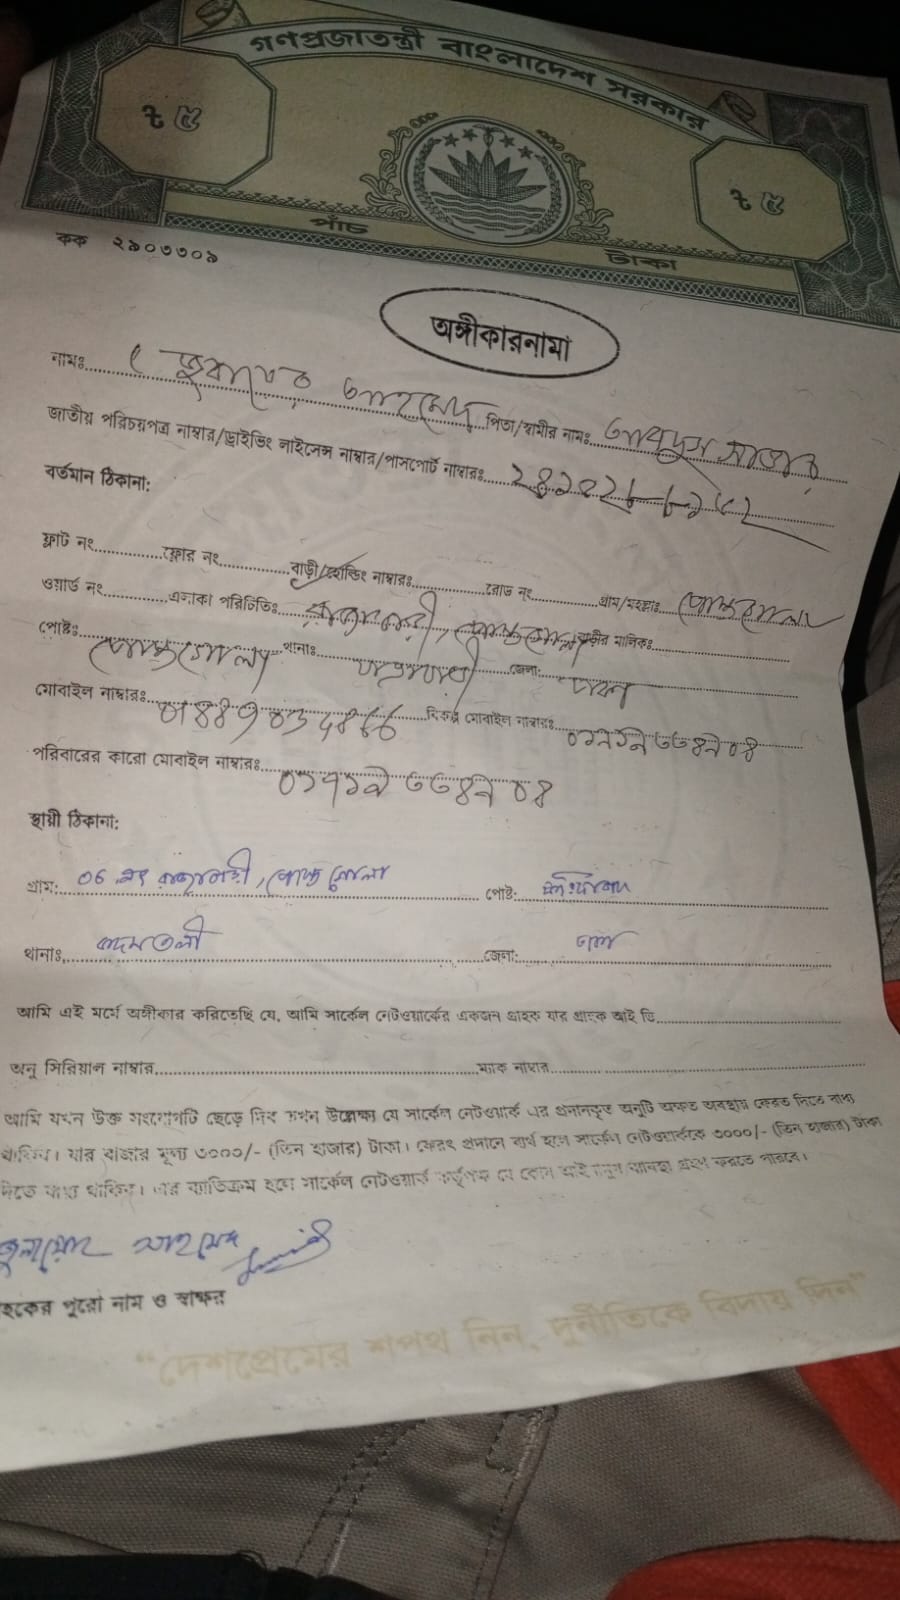 গণপ্রজাতন্ত্রী বাংলাদেশ সরকার
৳ ৫
৳ ৫
পাঁচ টাকা
কক ২৯০৩৩০৯
অঙ্গীকারনামা
নামঃ আহমেদ পিতা/স্বামীর নামঃ আবদুস সাত্তার
জাতীয় পরিচয়পত্র নাম্বার/ড্রাইভিং লাইসেন্স নাম্বার/পাসপোর্ট নাম্বারঃ
বর্তমান ঠিকানা:
ফ্লাট নং ফ্লোর নং বাড়ী/হোল্ডিং নাম্বারঃ রোড নং গ্রাম/মহল্লাঃ পোস্তগোলা
ওয়ার্ড নং এলাকা পরিচিতিঃ রাজাবাড়ী, পোস্তগোলা বাড়ীর মালিকঃ
পোষ্টঃ পোস্তগোলা থানাঃ জেলা: ঢাকা
মোবাইল নাম্বারঃ বিকল্প মোবাইল নাম্বারঃ
পরিবারের কারো মোবাইল নাম্বারঃ
স্থায়ী ঠিকানা:
গ্রাম: রাজাবাড়ী, পোস্তগোলা পোষ্ট: ফরিদাবাদ
থানাঃ কদমতলী জেলা: ঢাকা
আমি এই মর্মে অঙ্গীকার করিতেছি যে, আমি সার্কেল নেটওয়ার্কের একজন গ্রাহক যার গ্রাহক আই ডি
অনু সিরিয়াল নাম্বার ম্যাক নাম্বার
আমি যখন উক্ত সংযোগটি ছেড়ে দিব তখন উল্লেক্ষ্য যে সার্কেল নেটওয়ার্ক এর প্রদানকৃত অনুটি অক্ষত অবস্থায় ফেরত দিতে বাধ্য
থাকিব। যার বাজার মূল্য ৩০০০/- (তিন হাজার) টাকা। ফেরৎ প্রদানে ব্যর্থ হলে সার্কেল নেটওয়ার্ককে ৩০০০/- (তিন হাজার) টাকা
দিতে বাধ্য থাকিব। এর ব্যতিক্রম হলে সার্কেল নেটওয়ার্ক কর্তৃপক্ষ যে কোন আইনানুগ ব্যবস্থা গ্রহণ করতে পারবে।
আহমেদ
হকের পুরো নাম ও স্বাক্ষর
“দেশপ্রেমের শপথ নিন, দুর্নীতিকে বিদায় দিন”